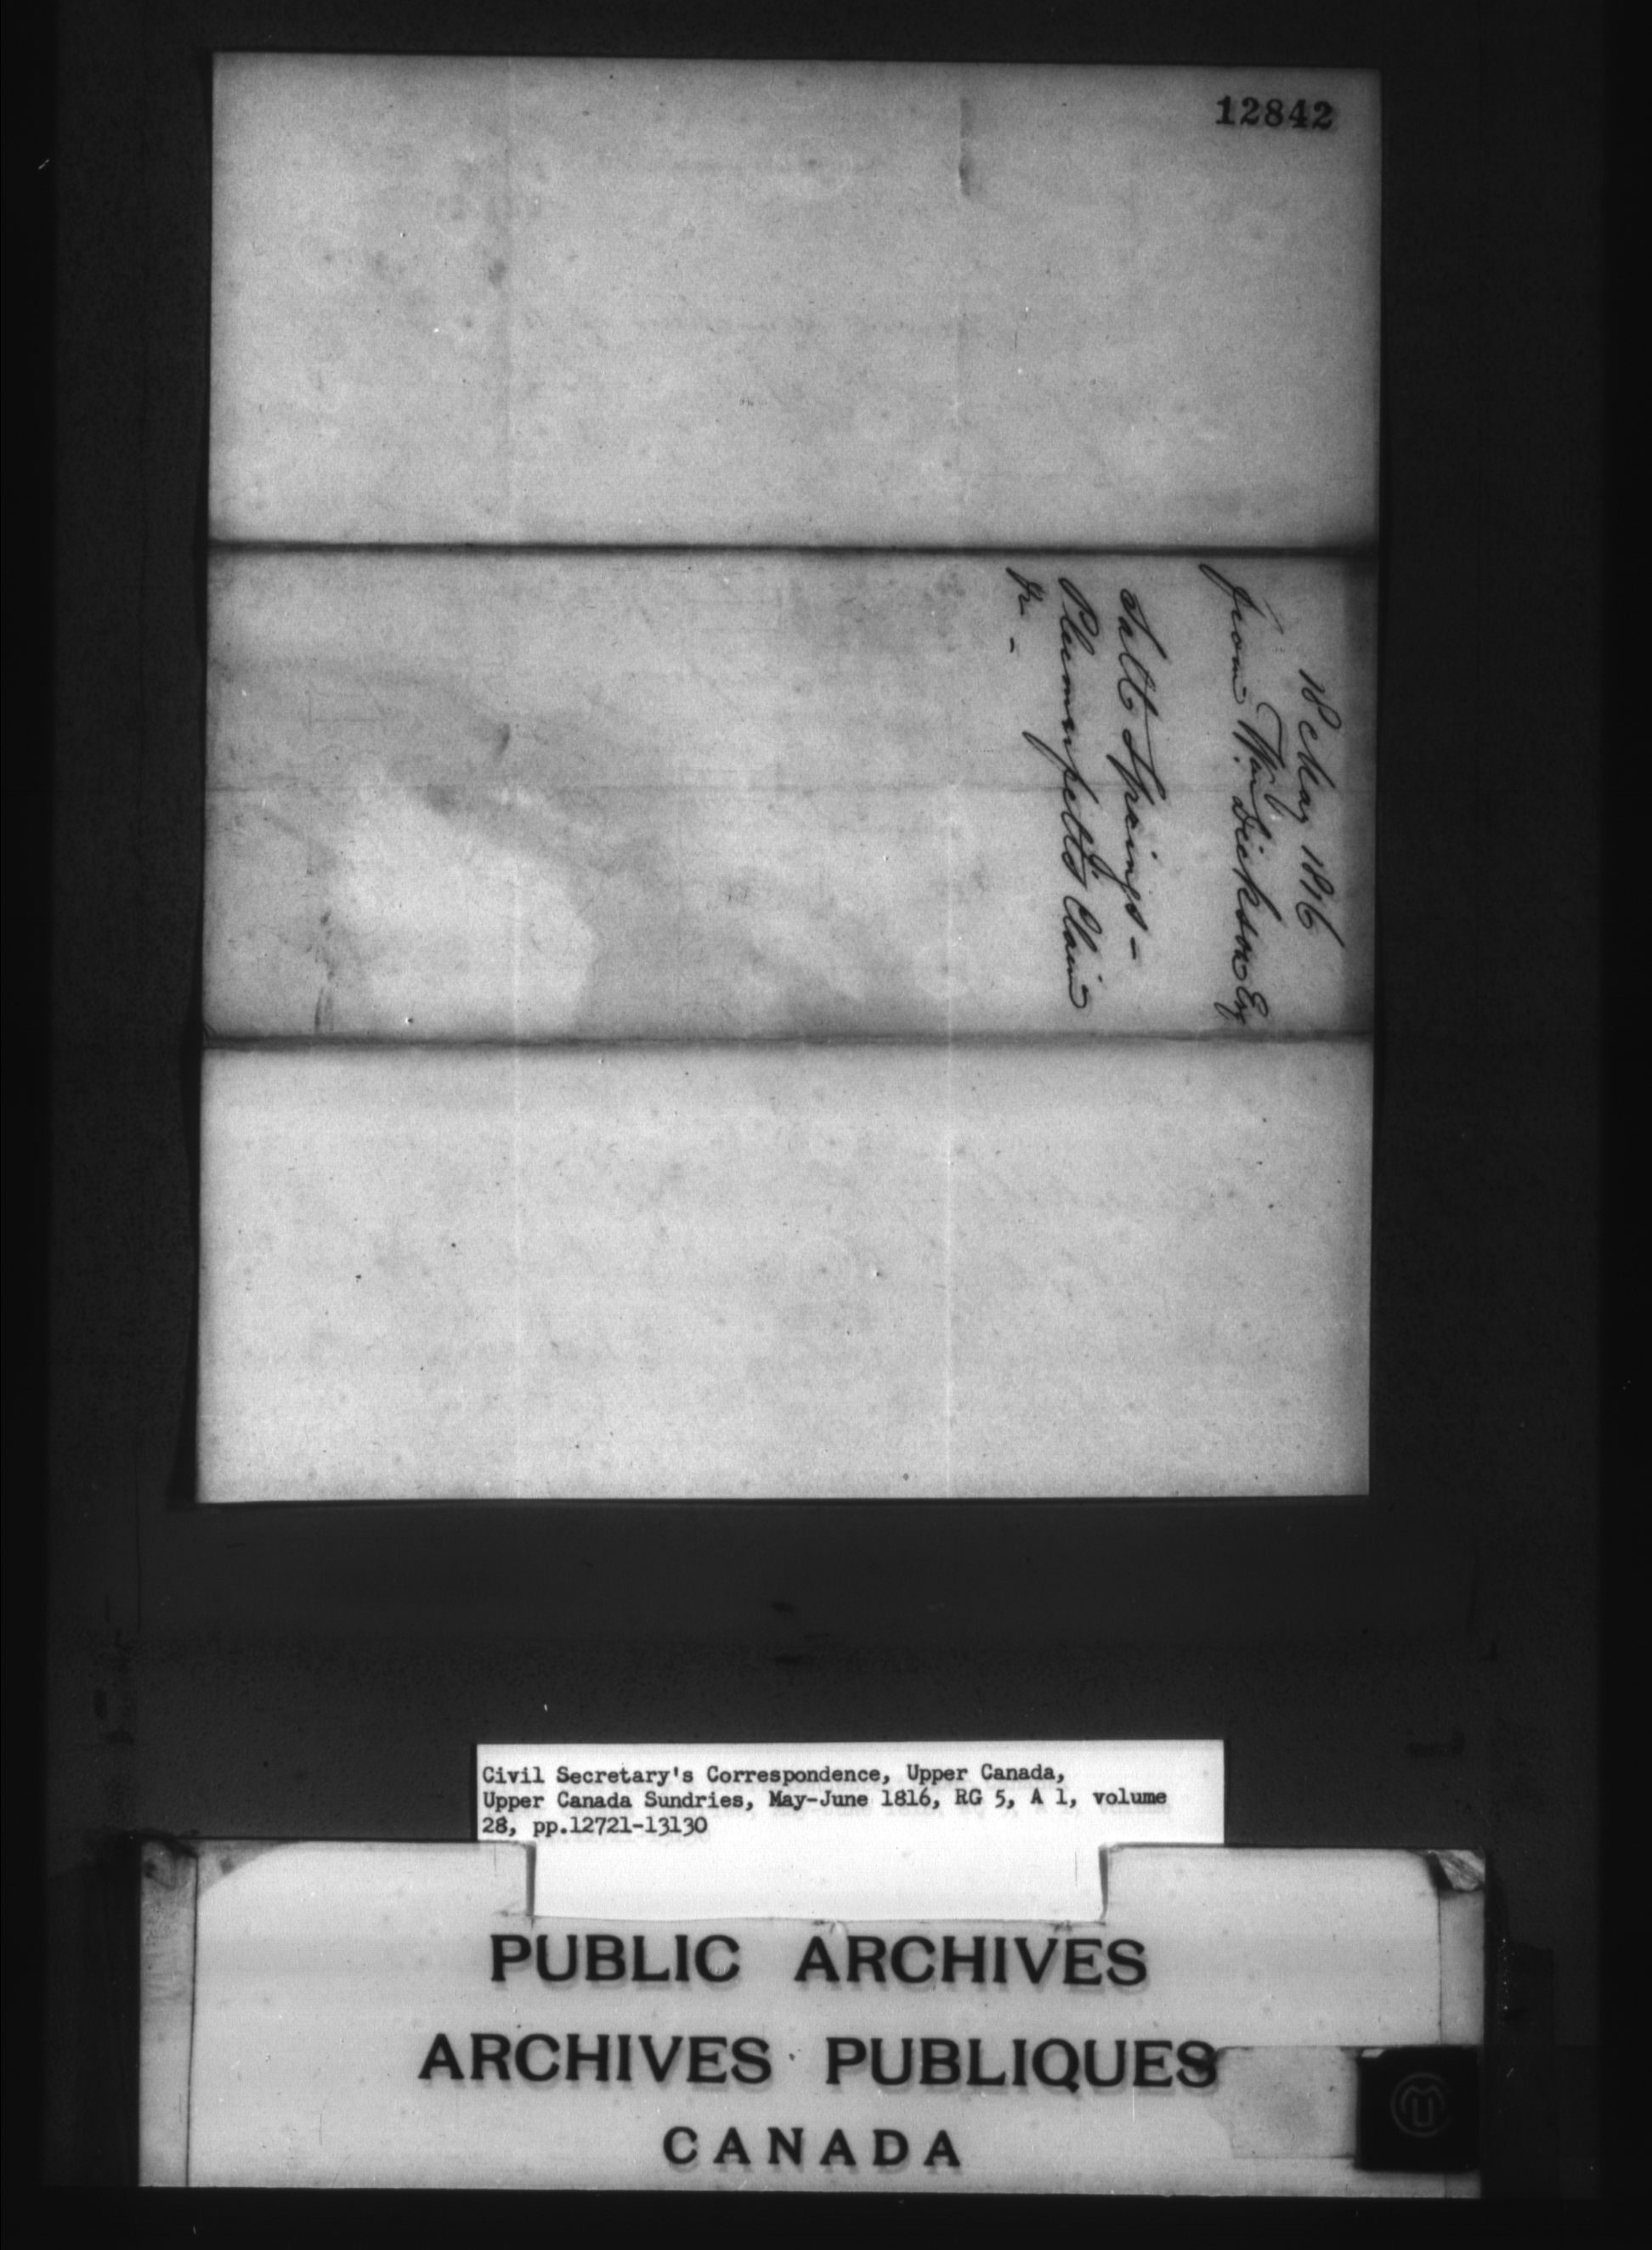 12842
18 May 1816
from Wm. Dickson Esq
Salt Springs -
Claim
&c -
Civil Secretary's Correspondence, Upper Canada,
Upper Canada Sundries, May-June 1816, RG 5, A 1, volume
28, pp.12721-13130
PUBLIC ARCHIVES
ARCHIVES PUBLIQUES
CANADA